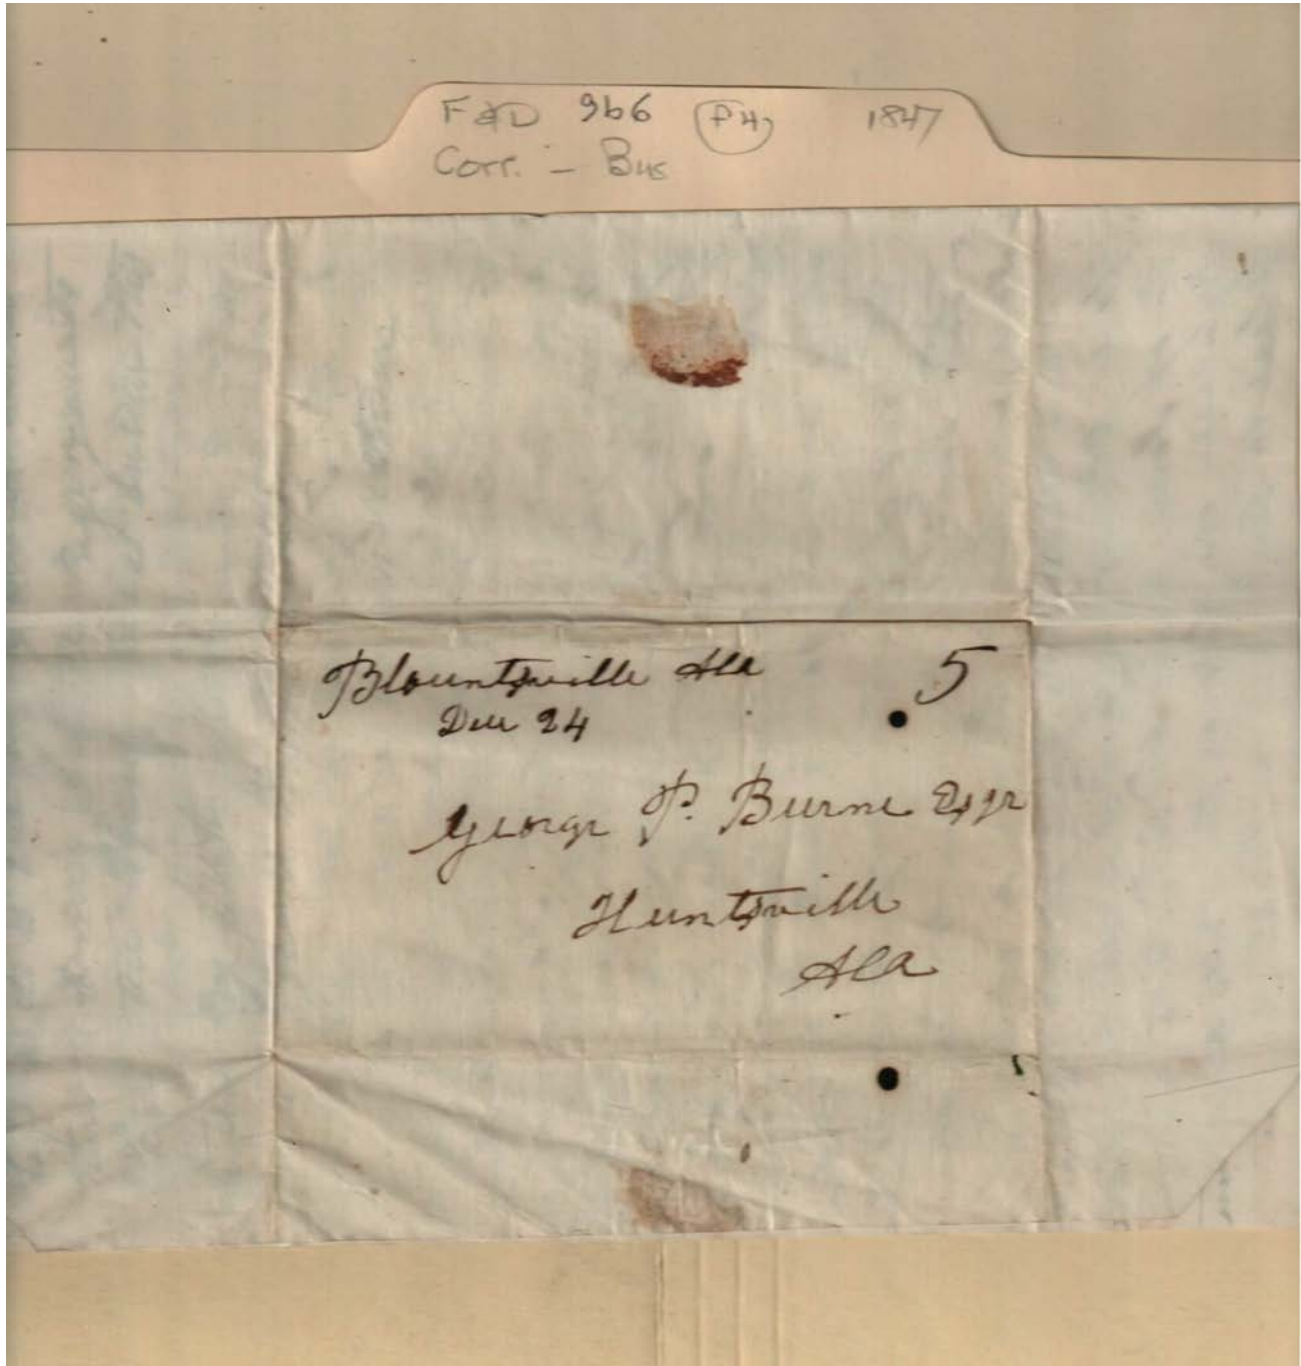 F&D 966 (F4) 1847
Corr. - Bus
Blountsville Ala 5
Dec 24
George P. Beirne Esqr
Huntsville
Ala